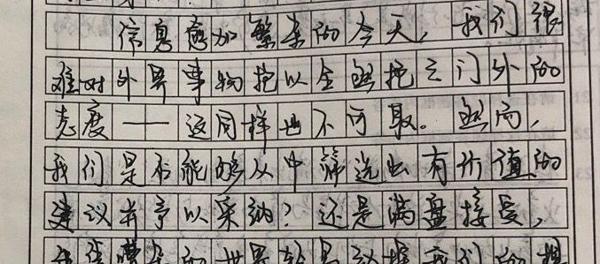 信息愈加繁杂的今天,我们很
难对外界事物抱以全然拒之门外的
态度——这同样也不可取。然而,
我们是否能够从中筛选出有价值的
建议并予以采纳?还是满盘接受,
的世界轻易 我们的